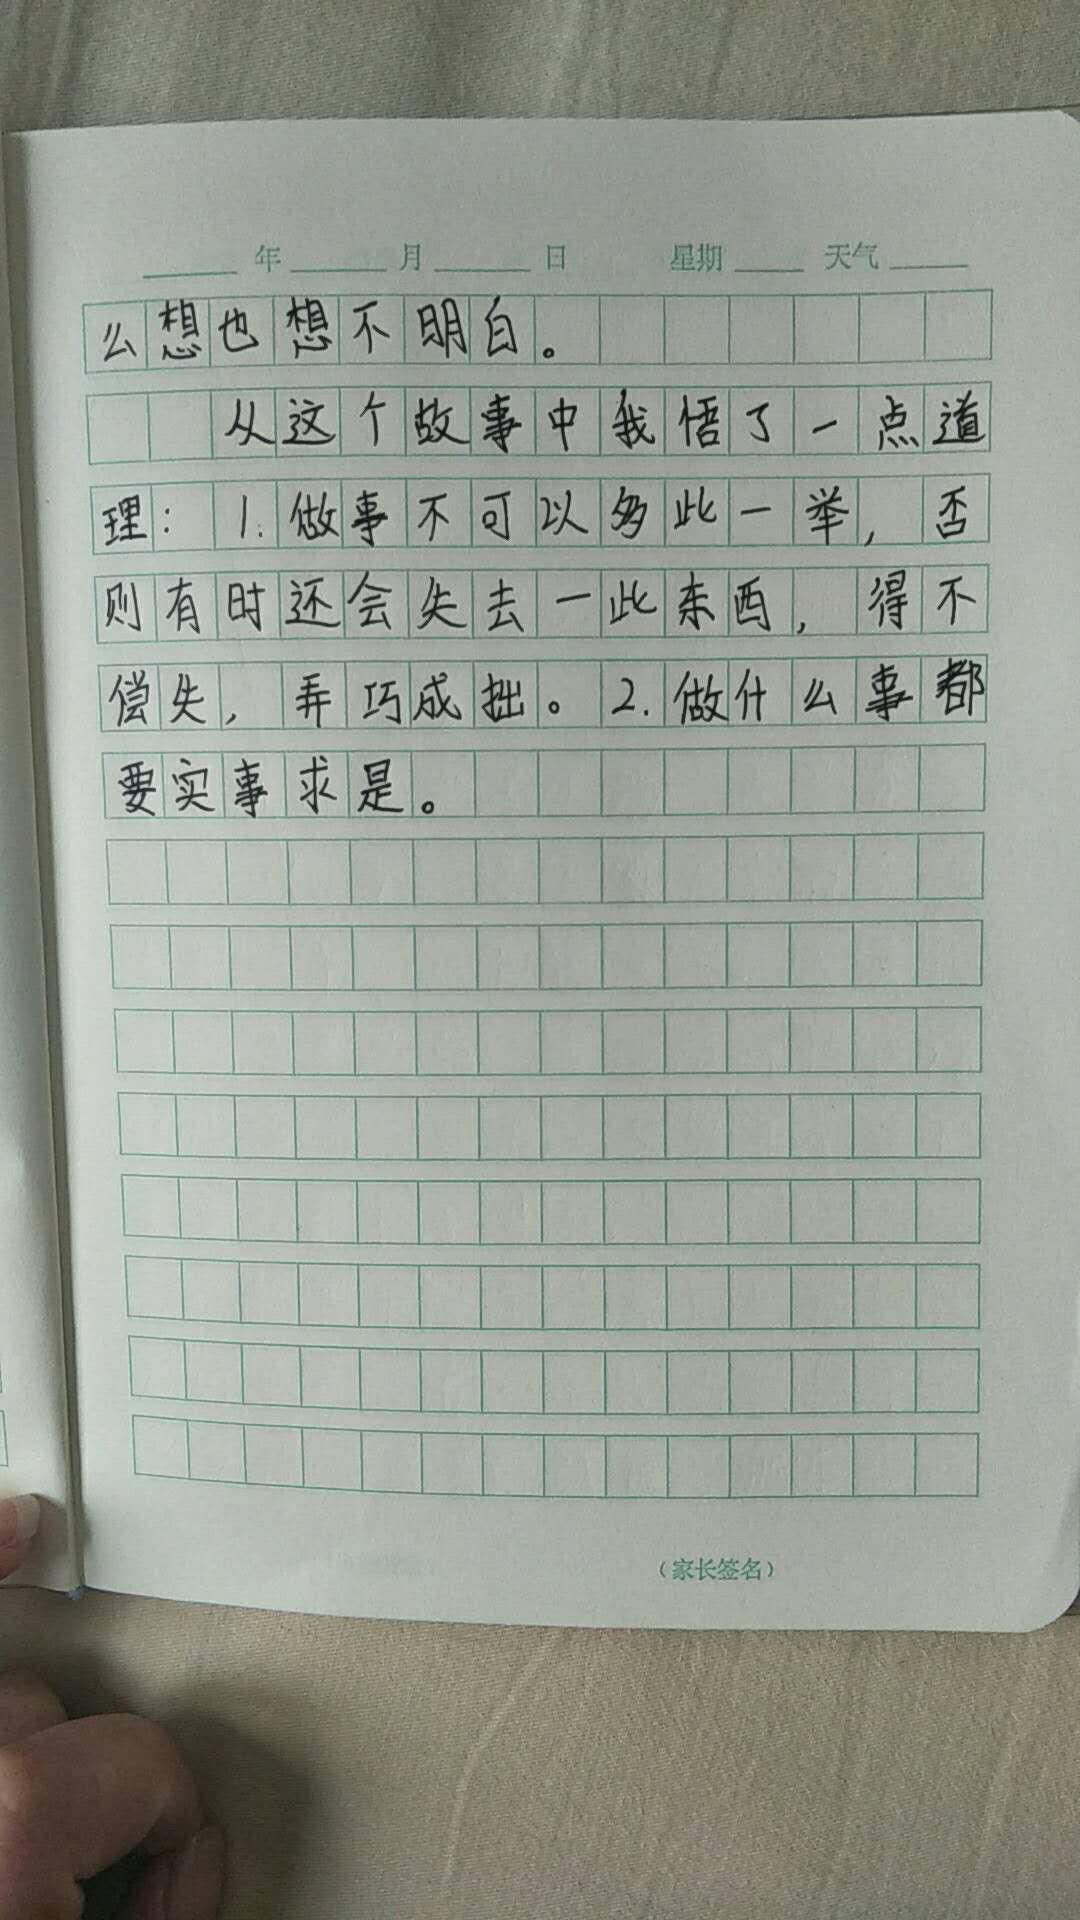 年 月 日 星期 天气
么想也想不明白。
从这个故事中我悟了一点道
理：1.做事不可以多此一举，否
则有时还会失去一些东西，得不
偿失，弄巧成拙。2.做什么事都
要实事求是。
（家长签名）